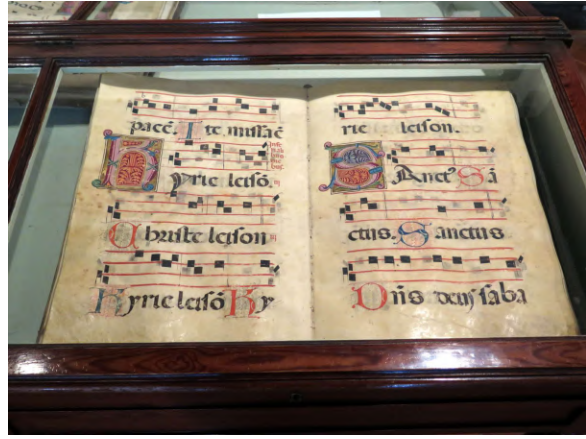 pacē. Ite. missa ē
Kyrie leisō. iij
Christe leison iij
Kyrie leisō Ky
rie leison.
Sanct⁹ Sā
ctus. Sanctus
Dn̄s deus saba